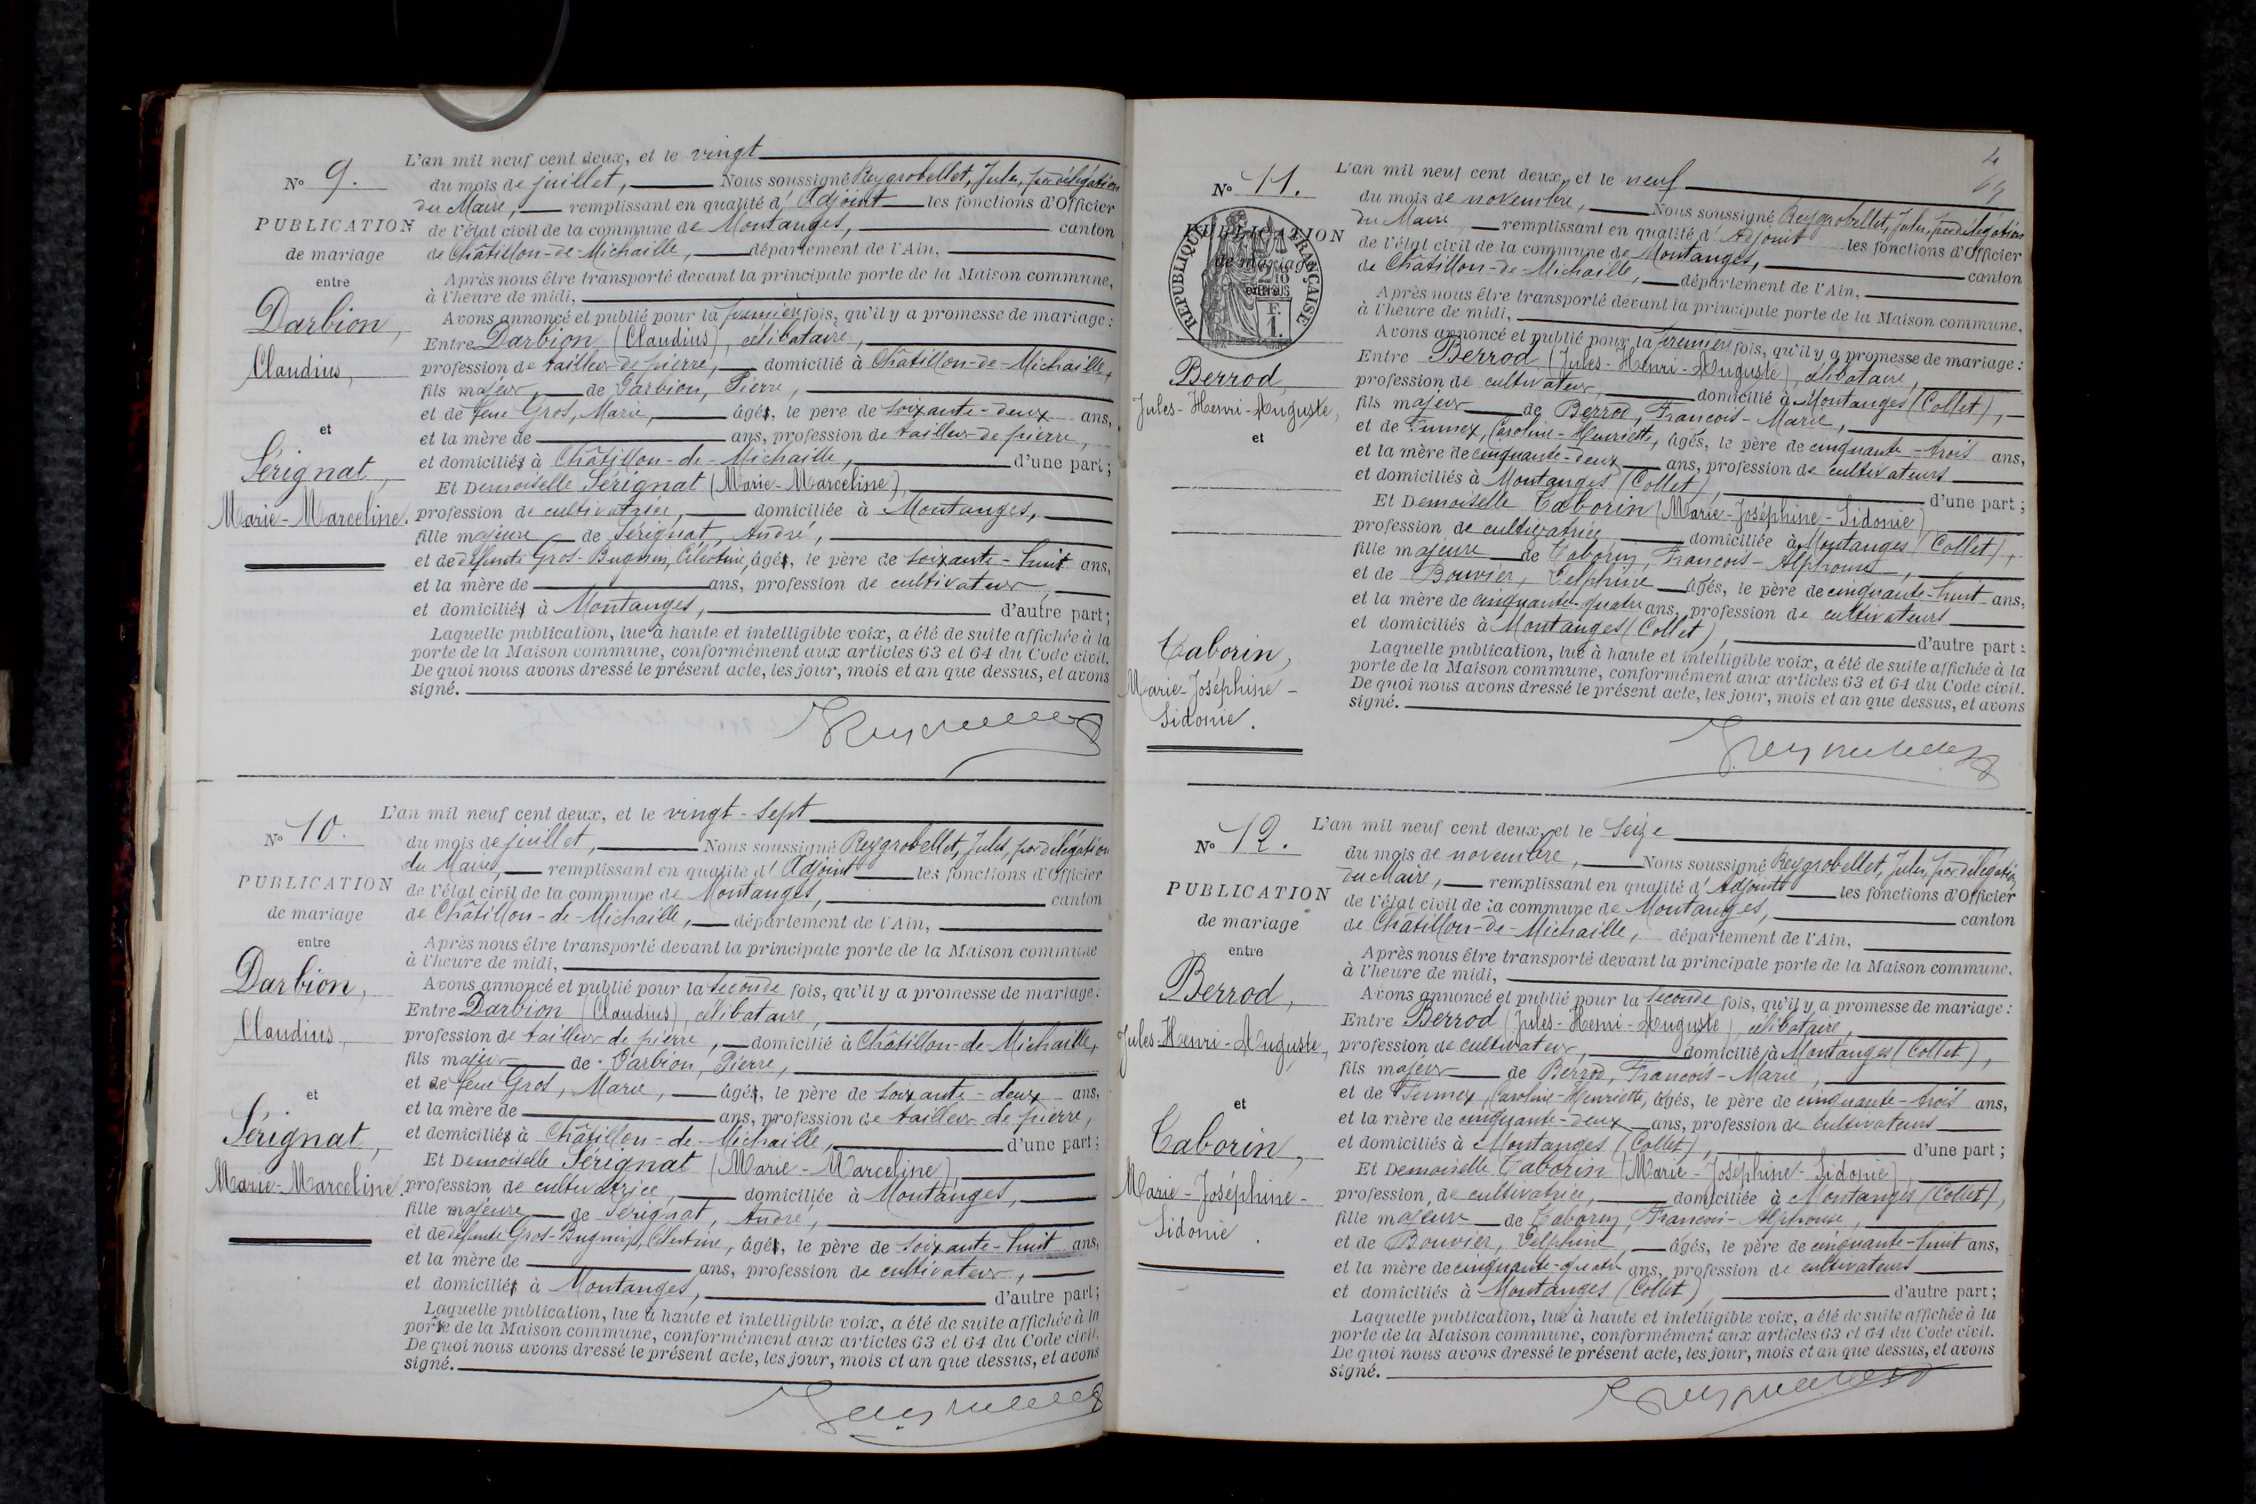 L'an mil neuf cent deux, et le vingt
N° 9.
du mois de juillet, Nous soussigné Reygrobellet, Jules, par délégation
du Maire, remplissant en qualité d'Adjoint les fonctions d'Officier
PUBLICATION
de l'état civil de la commune de Montanges, canton
de mariage
de Châtillon-de-Michaille, département de l'Ain,
entre
Après nous être transporté devant la principale porte de la Maison commune,
à l'heure de midi,
Darbion,
Avons annoncé et publié pour la première fois, qu'il y a promesse de mariage :
Entre Darbion (Claudius), célibataire,
Claudius,
profession de tailleur de pierre, domicilié à Châtillon-de-Michaille,
fils majeur de Darbion, Pierre,
et de feue Gros, Marie, âgé, le père de soixante-deux ans,
et
et la mère de ans, profession de tailleur de pierre,
et domicilié à Châtillon-de-Michaille, d'une part ;
Sérignat,
Et Demoiselle Sérignat (Marie-Marceline),
Marie-Marceline.
profession de cultivatrice, domiciliée à Montanges,
fille majeure de Sérignat, André,
et de défunte Gros-Bugnon, Célestine, âgé, le père de soixante-huit ans,
et la mère de ans, profession de cultivateur,
et domicilié à Montanges, d'autre part ;
Laquelle publication, lue à haute et intelligible voix, a été de suite affichée à la
porte de la Maison commune, conformément aux articles 63 et 64 du Code civil.
De quoi nous avons dressé le présent acte, les jour, mois et an que dessus, et avons
signé.
L'an mil neuf cent deux, et le vingt-sept
N° 10.
du mois de juillet, Nous soussigné Reygrobellet, Jules, par délégation
du Maire, remplissant en qualité d'Adjoint les fonctions d'Officier
PUBLICATION
de l'état civil de la commune de Montanges, canton
de mariage
de Châtillon-de-Michaille, département de l'Ain,
entre
Après nous être transporté devant la principale porte de la Maison commune
à l'heure de midi,
Darbion,
Avons annoncé et publié pour la seconde fois, qu'il y a promesse de mariage :
Entre Darbion (Claudius), célibataire,
Claudius,
profession de tailleur de pierre, domicilié à Châtillon-de-Michaille,
fils majeur de Darbion, Pierre,
et de feue Gros, Marie, âgé, le père de soixante-deux ans,
et
et la mère de ans, profession de tailleur de pierre,
et domicilié à Châtillon-de-Michaille, d'une part ;
Sérignat,
Et Demoiselle Sérignat (Marie-Marceline),
Marie-Marceline.
profession de cultivatrice, domiciliée à Montanges,
fille majeure de Sérignat, André,
et de défunte Gros-Bugnon, Célestine, âgé, le père de soixante-huit ans,
et la mère de ans, profession de cultivateur,
et domicilié à Montanges, d'autre part ;
Laquelle publication, lue à haute et intelligible voix, a été de suite affichée à la
porte de la Maison commune, conformément aux articles 63 et 64 du Code civil.
De quoi nous avons dressé le présent acte, les jour, mois et an que dessus, et avons
signé.
4
L'an mil neuf cent deux, et le neuf
N° 11.
du mois de novembre, Nous soussigné Reygrobellet, Jules, par délégation
du Maire remplissant en qualité d'Adjoint les fonctions d'Officier
PUBLICATION
de l'état civil de la commune de Montanges, canton
de mariage
RÉPUBLIQUE FRANÇAISE
F.
1.
de Châtillon-de-Michaille, département de l'Ain,
entre
Après nous être transporté devant la principale porte de la Maison commune,
à l'heure de midi,
Avons annoncé et publié pour la première fois, qu'il y a promesse de mariage :
Entre Berrod (Jules-Henri-Auguste), célibataire,
Berrod,
profession de cultivateur, domicilié à Montanges (Collet),
Jules-Henri-Auguste,
fils majeur de Berrod, François-Marie,
et
et de Tumex, Caroline-Henriette, âgés, le père de cinquante-trois ans,
et la mère de cinquante-deux ans, profession de cultivateurs
et domiciliés à Montanges (Collet), d'une part ;
Et Demoiselle Taborin (Marie-Joséphine-Sidonie)
profession de cultivatrice domiciliée à Montanges (Collet),
fille majeure de Taborin, François-Alphonse,
et de Bouvier, Delphine âgés, le père de cinquante-huit ans,
et la mère de cinquante-quatre ans, profession de cultivateurs
et domiciliés à Montanges (Collet), d'autre part :
Taborin,
Laquelle publication, lue à haute et intelligible voix, a été de suite affichée à la
porte de la Maison commune, conformément aux articles 63 et 64 du Code civil.
Marie-Joséphine-
De quoi nous avons dressé le présent acte, les jour, mois et an que dessus, et avons
Sidonie.
signé.
L'an mil neuf cent deux, et le seize
N° 12.
du mois de novembre, Nous soussigné Reygrobellet, Jules, par délégation
du Maire, remplissant en qualité d'Adjoint les fonctions d'Officier
PUBLICATION
de l'état civil de la commune de Montanges, canton
de mariage
de Châtillon-de-Michaille, département de l'Ain,
entre
Après nous être transporté devant la principale porte de la Maison commune.
à l'heure de midi,
Berrod,
Avons annoncé et publié pour la seconde fois, qu'il y a promesse de mariage :
Entre Berrod (Jules-Henri-Auguste), célibataire,
Jules-Henri-Auguste,
profession de cultivateur, domicilié à Montanges (Collet),
fils majeur de Berrod, François-Marie,
et
et de Tumex, Caroline-Henriette, âgés, le père de cinquante-trois ans,
et la mère de cinquante-deux ans, profession de cultivateurs
Taborin,
et domiciliés à Montanges (Collet), d'une part ;
Et Demoiselle Taborin (Marie-Joséphine-Sidonie)
Marie-Joséphine-
profession de cultivatrice, domiciliée à Montanges (Collet),
Sidonie.
fille majeure de Taborin, François-Alphonse,
et de Bouvier, Delphine, âgés, le père de cinquante-huit ans,
et la mère de cinquante-quatre ans, profession de cultivateurs
et domiciliés à Montanges (Collet), d'autre part ;
Laquelle publication, lue à haute et intelligible voix, a été de suite affichée à la
porte de la Maison commune, conformément aux articles 63 et 64 du Code civil.
De quoi nous avons dressé le présent acte, les jour, mois et an que dessus, et avons
signé.